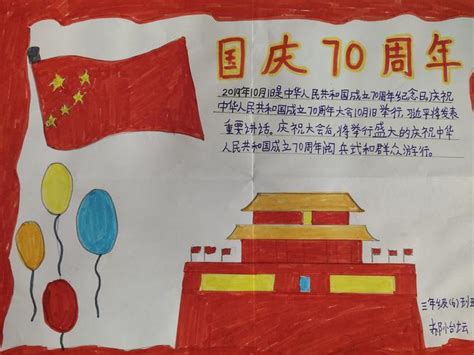 国庆70周年
2019年10月1日是中华人民共和国成立70周年纪念日,庆祝
中华人民共和国成立70周年大会10月1日举行,习近平将发表
重要讲话。庆祝大会后,将举行盛大的庆祝中华
人民共和国成立70周年阅兵式和群众游行。
三年级(6)班